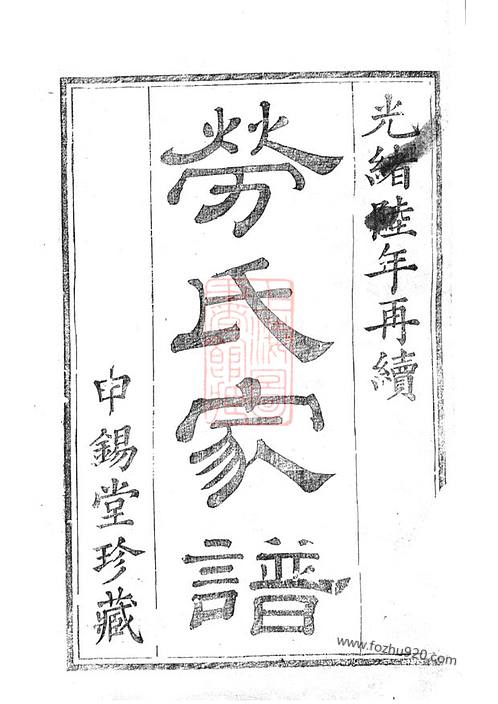 光緒陸年再續
勞氏家譜
申錫堂珍藏
www.fozhu920.com